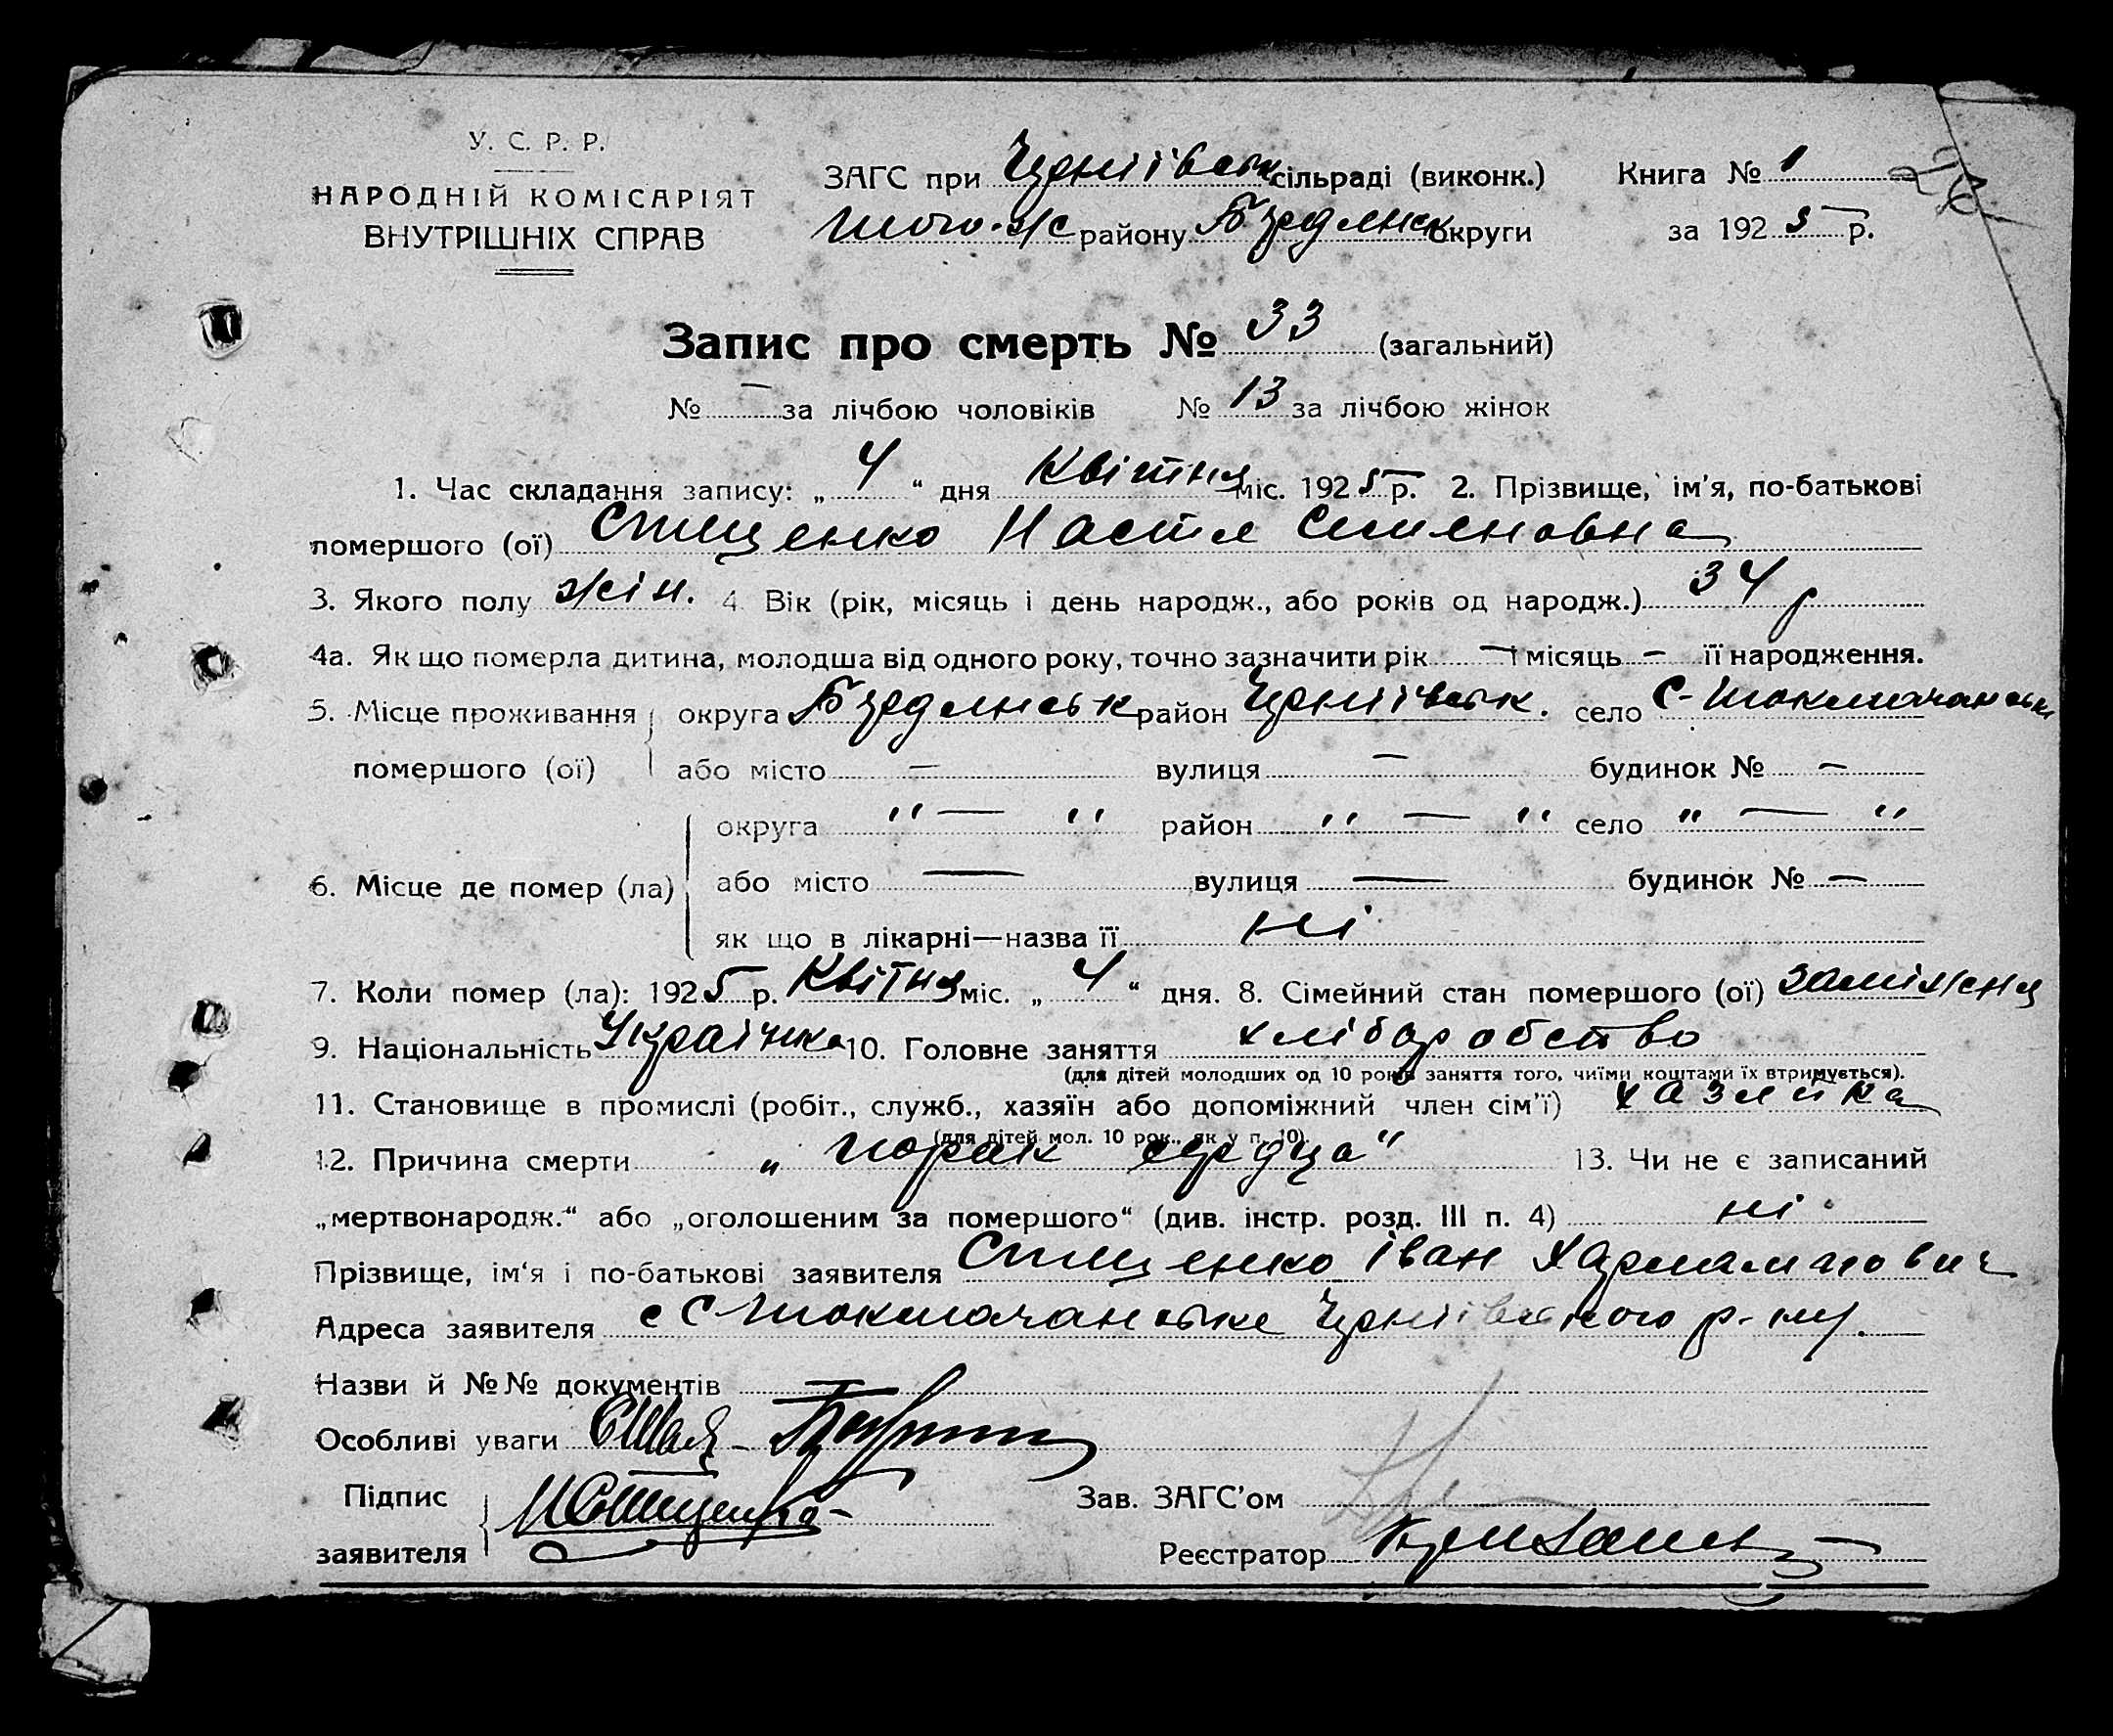 У. С. Р. Р.
НАРОДНІЙ КОМІСАРІЯТ
ВНУТРІШНІХ СПРАВ
ЗАГС при Чернігівськ сільраді (виконк.)
того-ж району Бердянськ округи
Книга № 1
за 1925 р.
Запис про смерть № 33 (загальний)
№ — за лічбою чоловіків № 13 за лічбою жінок
1. Час складання запису: „ 4 “ дня Квітня міс. 1925 р. 2. Прізвище, ім'я, по-батькові
помершого (ої) Спищенко Настя Семеновна
3. Якого полу жін. 4. Вік (рік, місяць і день народж., або років од народж.) 34 р
4а. Як що померла дитина, молодша від одного року, точно зазначити рік — і місяць — її народження.
5. Місце проживання округа Бердянськ район Чернігівськ. село С-Токмачанське
помершого (ої) або місто — вулиця — будинок № —
округа " — " район " — " село " — "
6. Місце де помер (ла) або місто — вулиця — будинок № —
як що в лікарні—назва її ні
7. Коли помер (ла): 1925 р. Квітня міс. „ 4 “ дня. 8. Сімейний стан помершого (ої) заміжня
9. Національність Українка 10. Головне заняття хліборобство
(для дітей молодших од 10 років заняття того, чиїми коштами їх втримується).
11. Становище в промислі (робіт., служб., хазяїн або допоміжний член сім'ї) хазяйка
(для дітей мол. 10 рок., як у п. 10).
12. Причина смерти „ порак сердца" 13. Чи не є записаний
„мертвонародж.“ або „оголошеним за помершого“ (див. інстр. розд. III п. 4) ні
Прізвище, ім'я і по-батькові заявителя Спищенко Іван
Адреса заявителя с С-Токмачанське Чернігівського р-ну.
Назви й №№ документів
Особливі уваги
Підпис
заявителя
Зав. ЗАГС'ом
Реєстратор